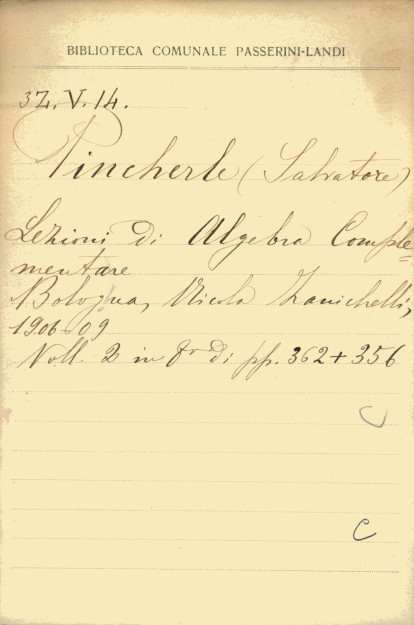 BIBLIOTECA COMUNALE PASSERINI-LANDI
3Z.V.14.
Pincherle (Salvatore)
Lezioni di Algebra Comple=
mentare
Bologna, Nicola Zanichelli,
1906-09
Voll. 2 in 8º di pp. 362+356
C
C